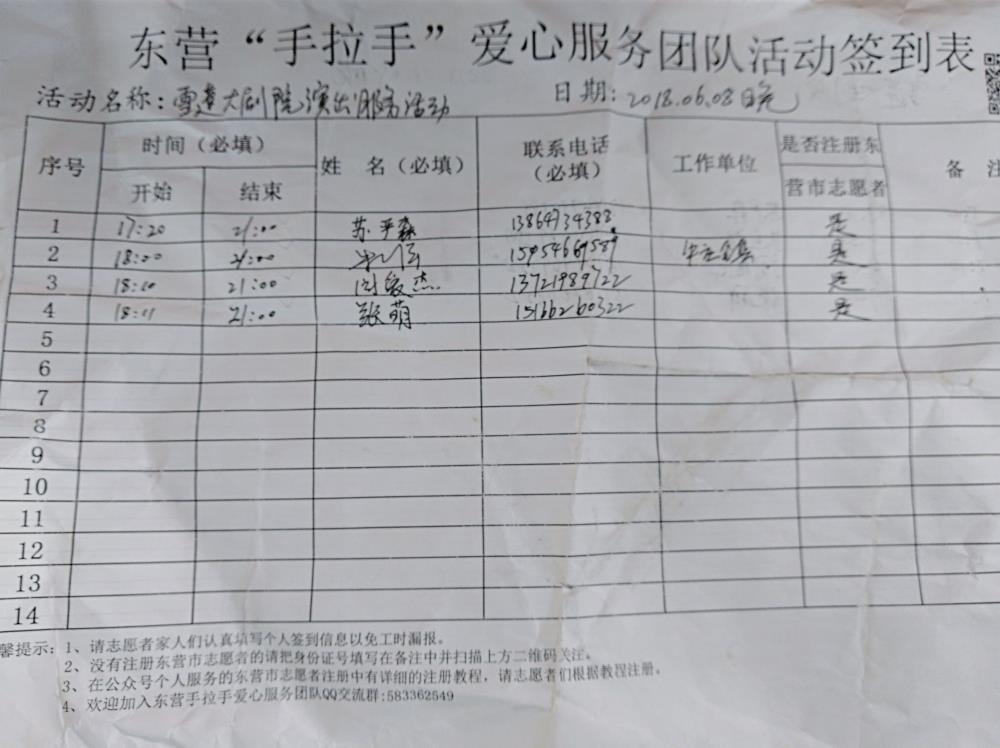 东营“手拉手”爱心服务团队活动签到表
活动名称：雪莲大剧院演出服务活动 日期：2018.06.08日晚
序号 时间（必填） 姓 名（必填） 联系电话（必填） 工作单位 是否注册东营市志愿者 备 注
开始 结束
1 17:20 21:00 苏平森 13864734388 是
2 18:00 21:00 15954669589 是
3 18:10 21:00 周爱杰 13721989722 是
4 18:11 21:00 张萌 15166260322 是
5
6
7
8
9
10
11
12
13
14
馨提示：1、请志愿者家人们认真填写个人签到信息以免工时漏报。
2、没有注册东营市志愿者的请把身份证号填写在备注中并扫描上方二维码关注。
3、在公众号个人服务的东营市志愿者注册中有详细的注册教程，请志愿者们根据教程注册。
4、欢迎加入东营手拉手爱心服务团队QQ交流群:583362549